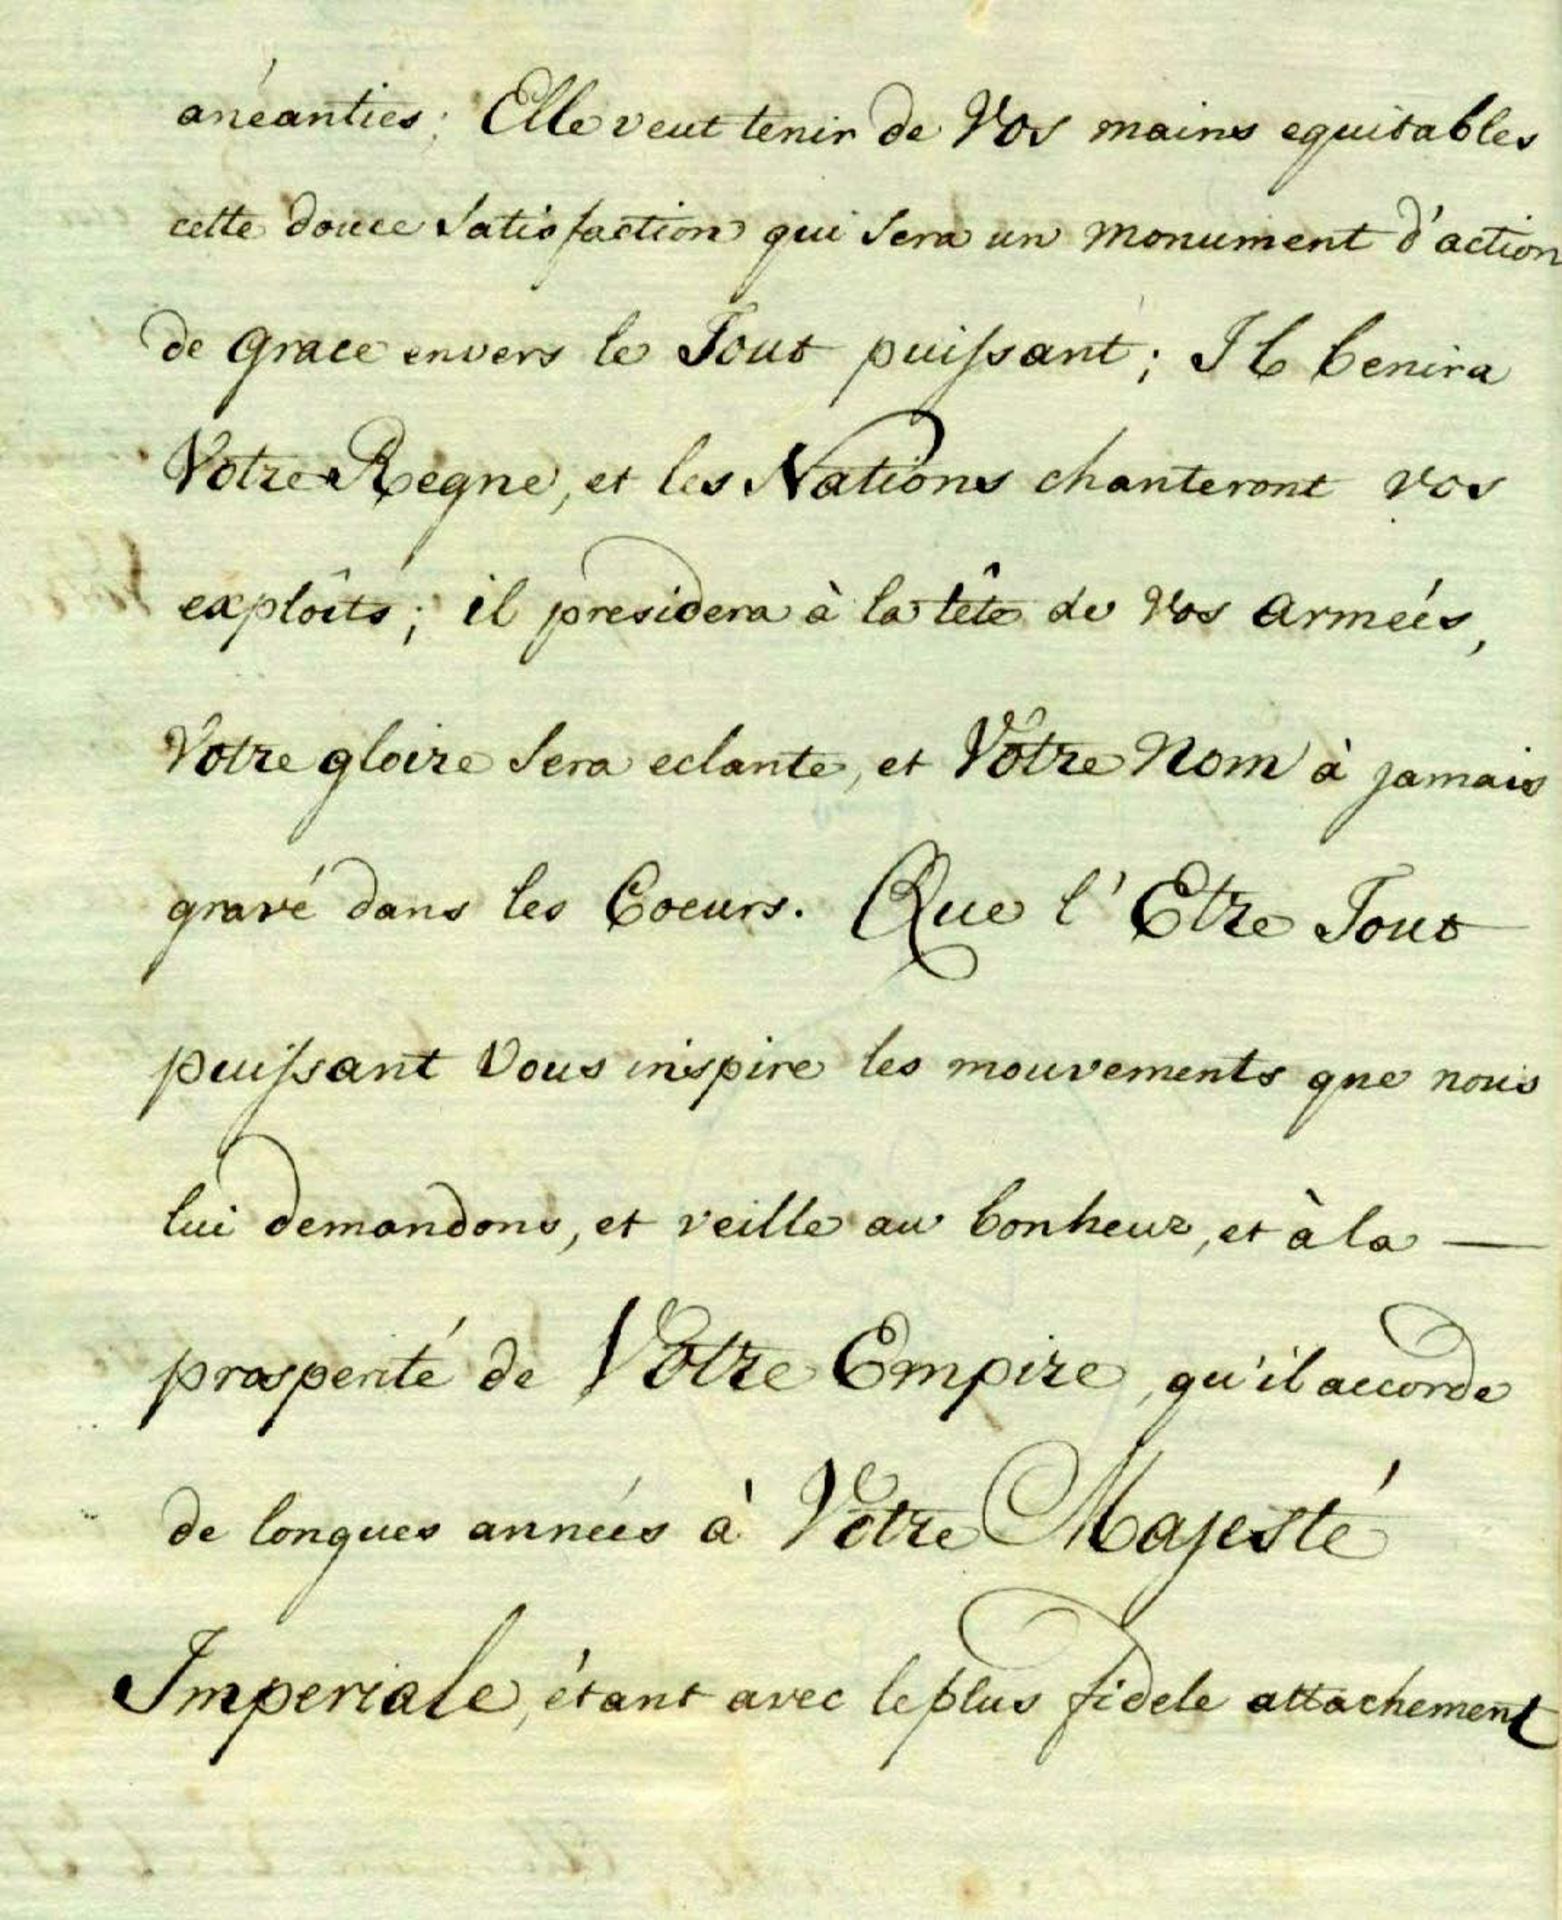 anéanties; Elle veut tenir de Vos mains equitables
cette douce satisfaction qui sera un monument d'action
de grace envers le Tout puissant; Il benira
Votre Regne, et les Nations chanteront vos
exploîts; il presidera à la tête de vos armeés,
Votre gloire sera eclante, et Votre Nom à jamais
gravé dans les Coeurs. Que l'Etre Tout
puissant Vous inspire les mouvements que nous
lui demandons, et veille au bonheur, et à la —
prosperité de Votre Empire, qu'il accorde
de longues anneés à Votre Majesté
Imperiale, étant avec le plus fidele attachement